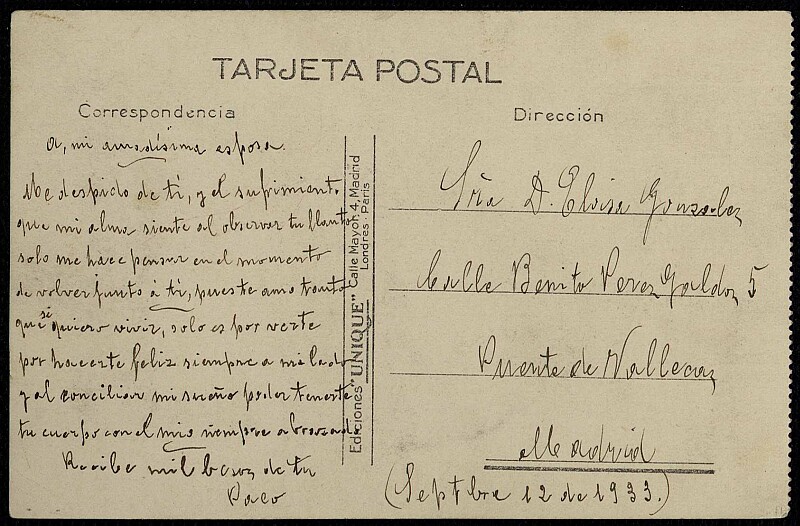 TARJETA POSTAL
Correspondencia
A, mi amadísima esposa.
Me despido de tí, y el sufrimiento
que mi alma siente al observar tu llanto
solo me hace pensar en el momento
de volver junto á tí, pues te amo tanto
que si quiero vivir, solo es por verte
por hacerte feliz siempre a mi lado
y al conciliar mi sueño poder tenerte
tu cuerpo con el mio siempre abrazado.
Recibe mil besos de tu
Paco
Ediciones "UNIQUE" Calle Mayor, 4, Madrid
Londres-Paris
Dirección
Sra D. Eloisa Gonzalez
Calle Benito Perez Galdos 5
Puente de Vallecas
Madrid
(Septbre 12 de 1933.)